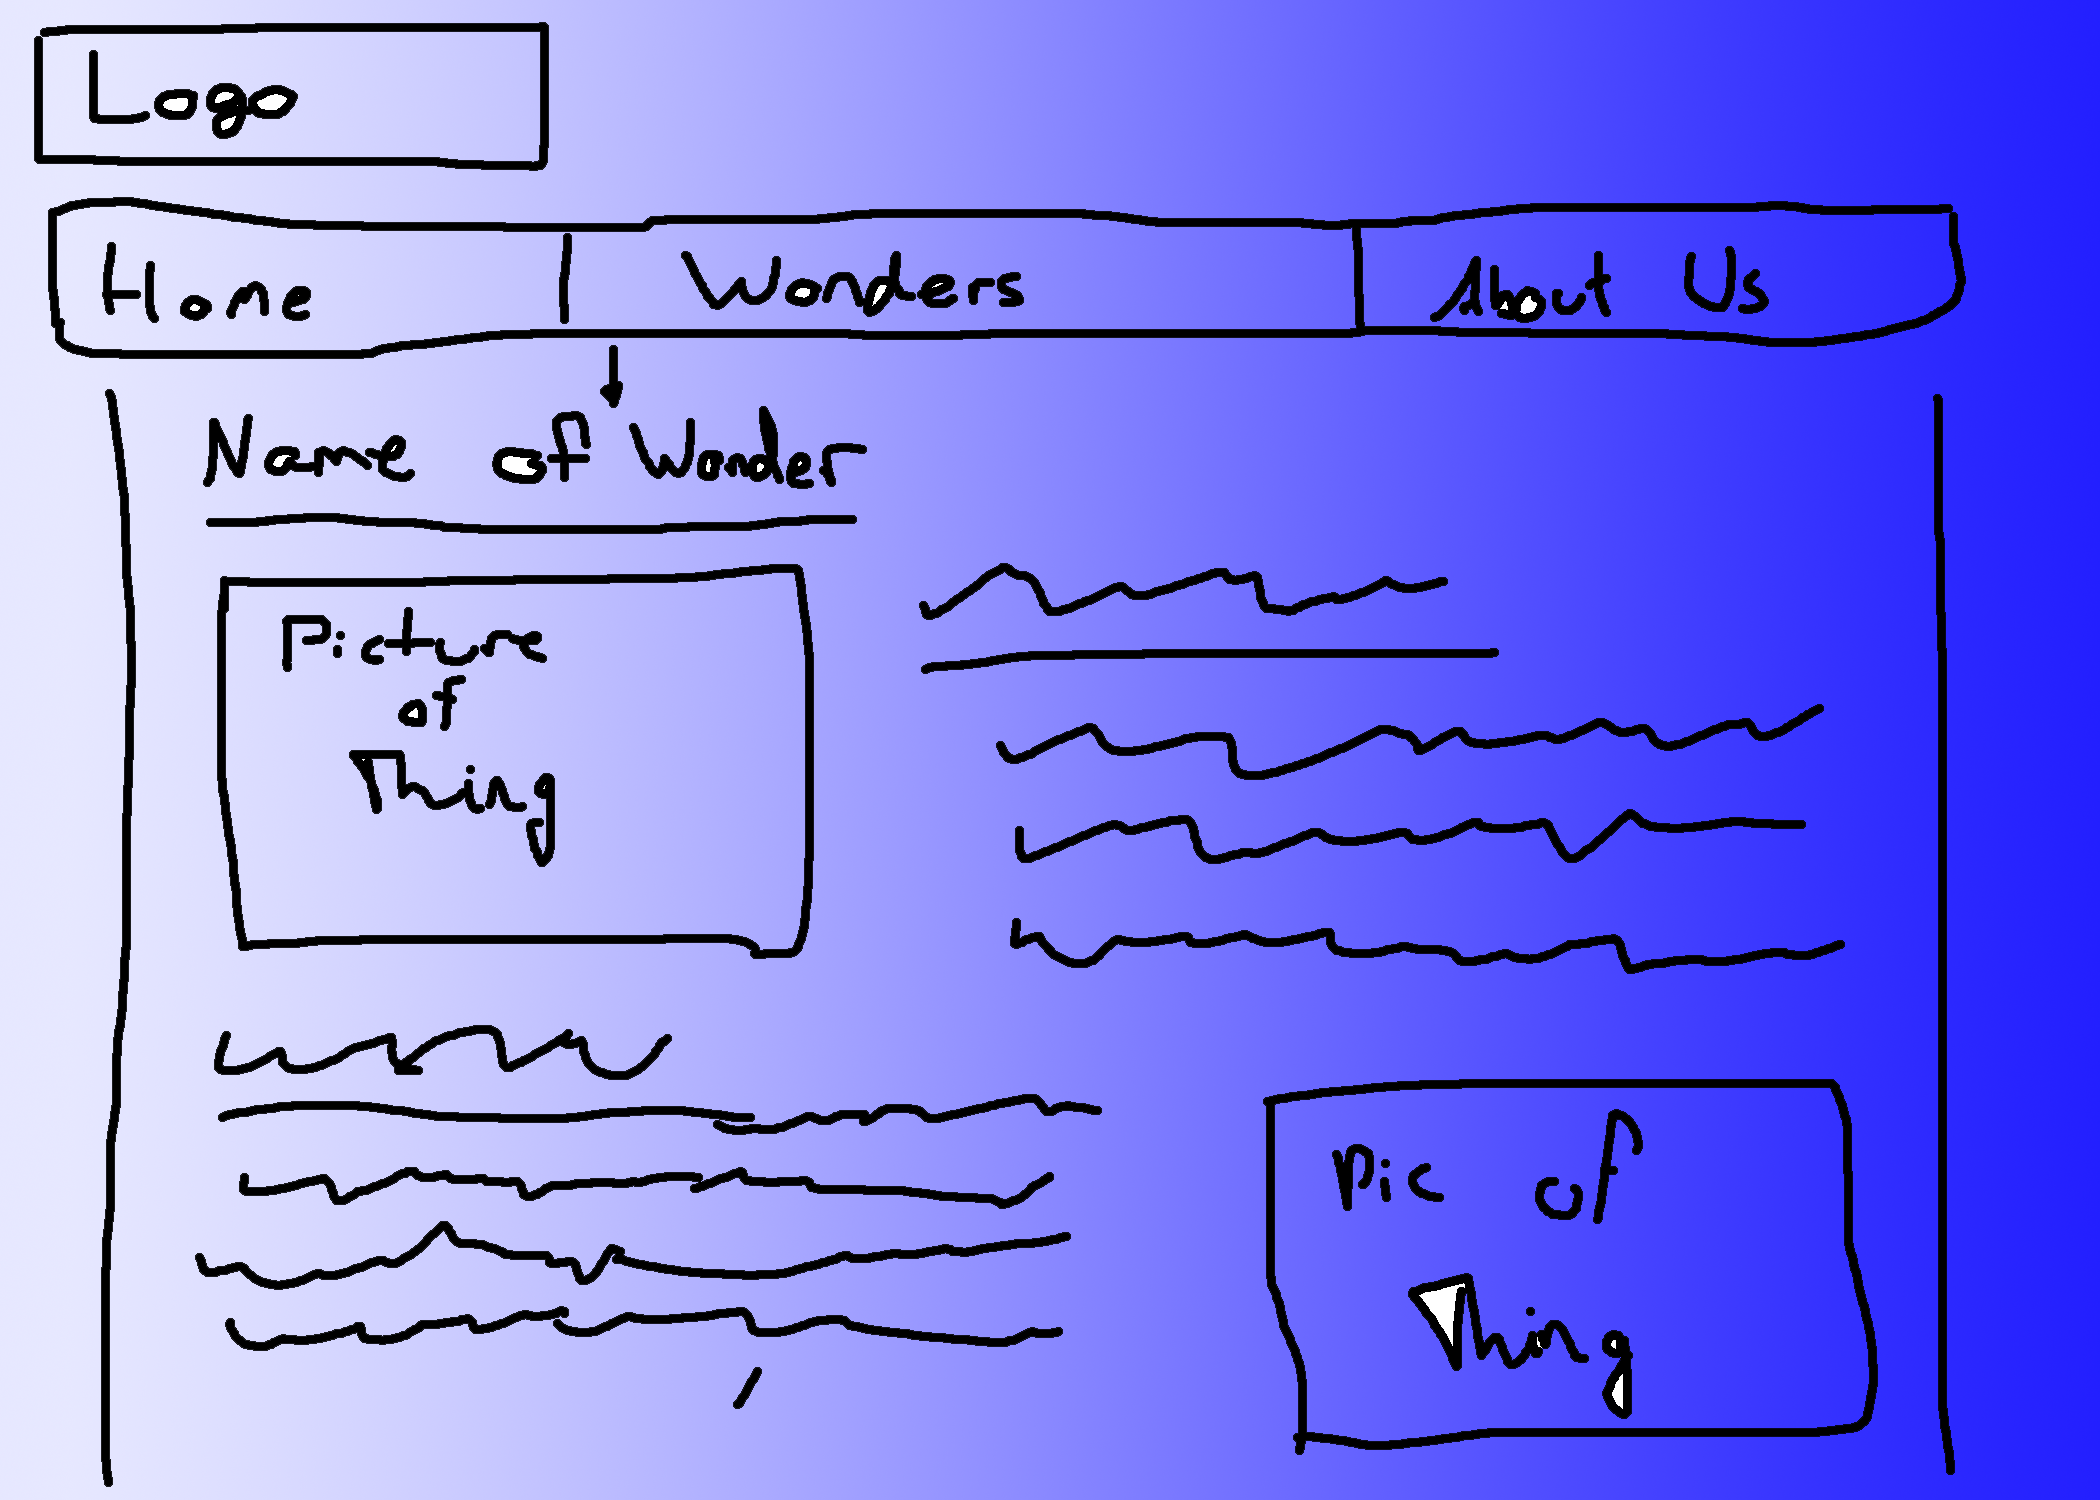 Logo
Home Wonders About Us
Name of Wonder
Picture
of
Thing
Pic of
Thing